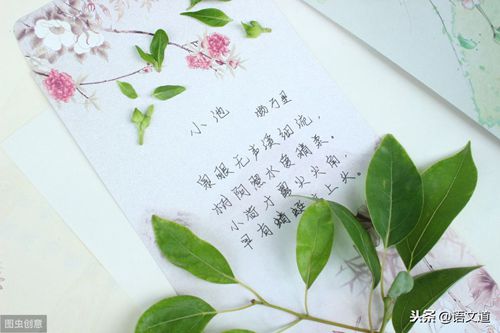 小池 杨万里
泉眼无声惜细流，
树阴照水爱晴柔。
小荷才露尖尖角，
早有蜻蜓立上头。
图虫创意
头条@语文道